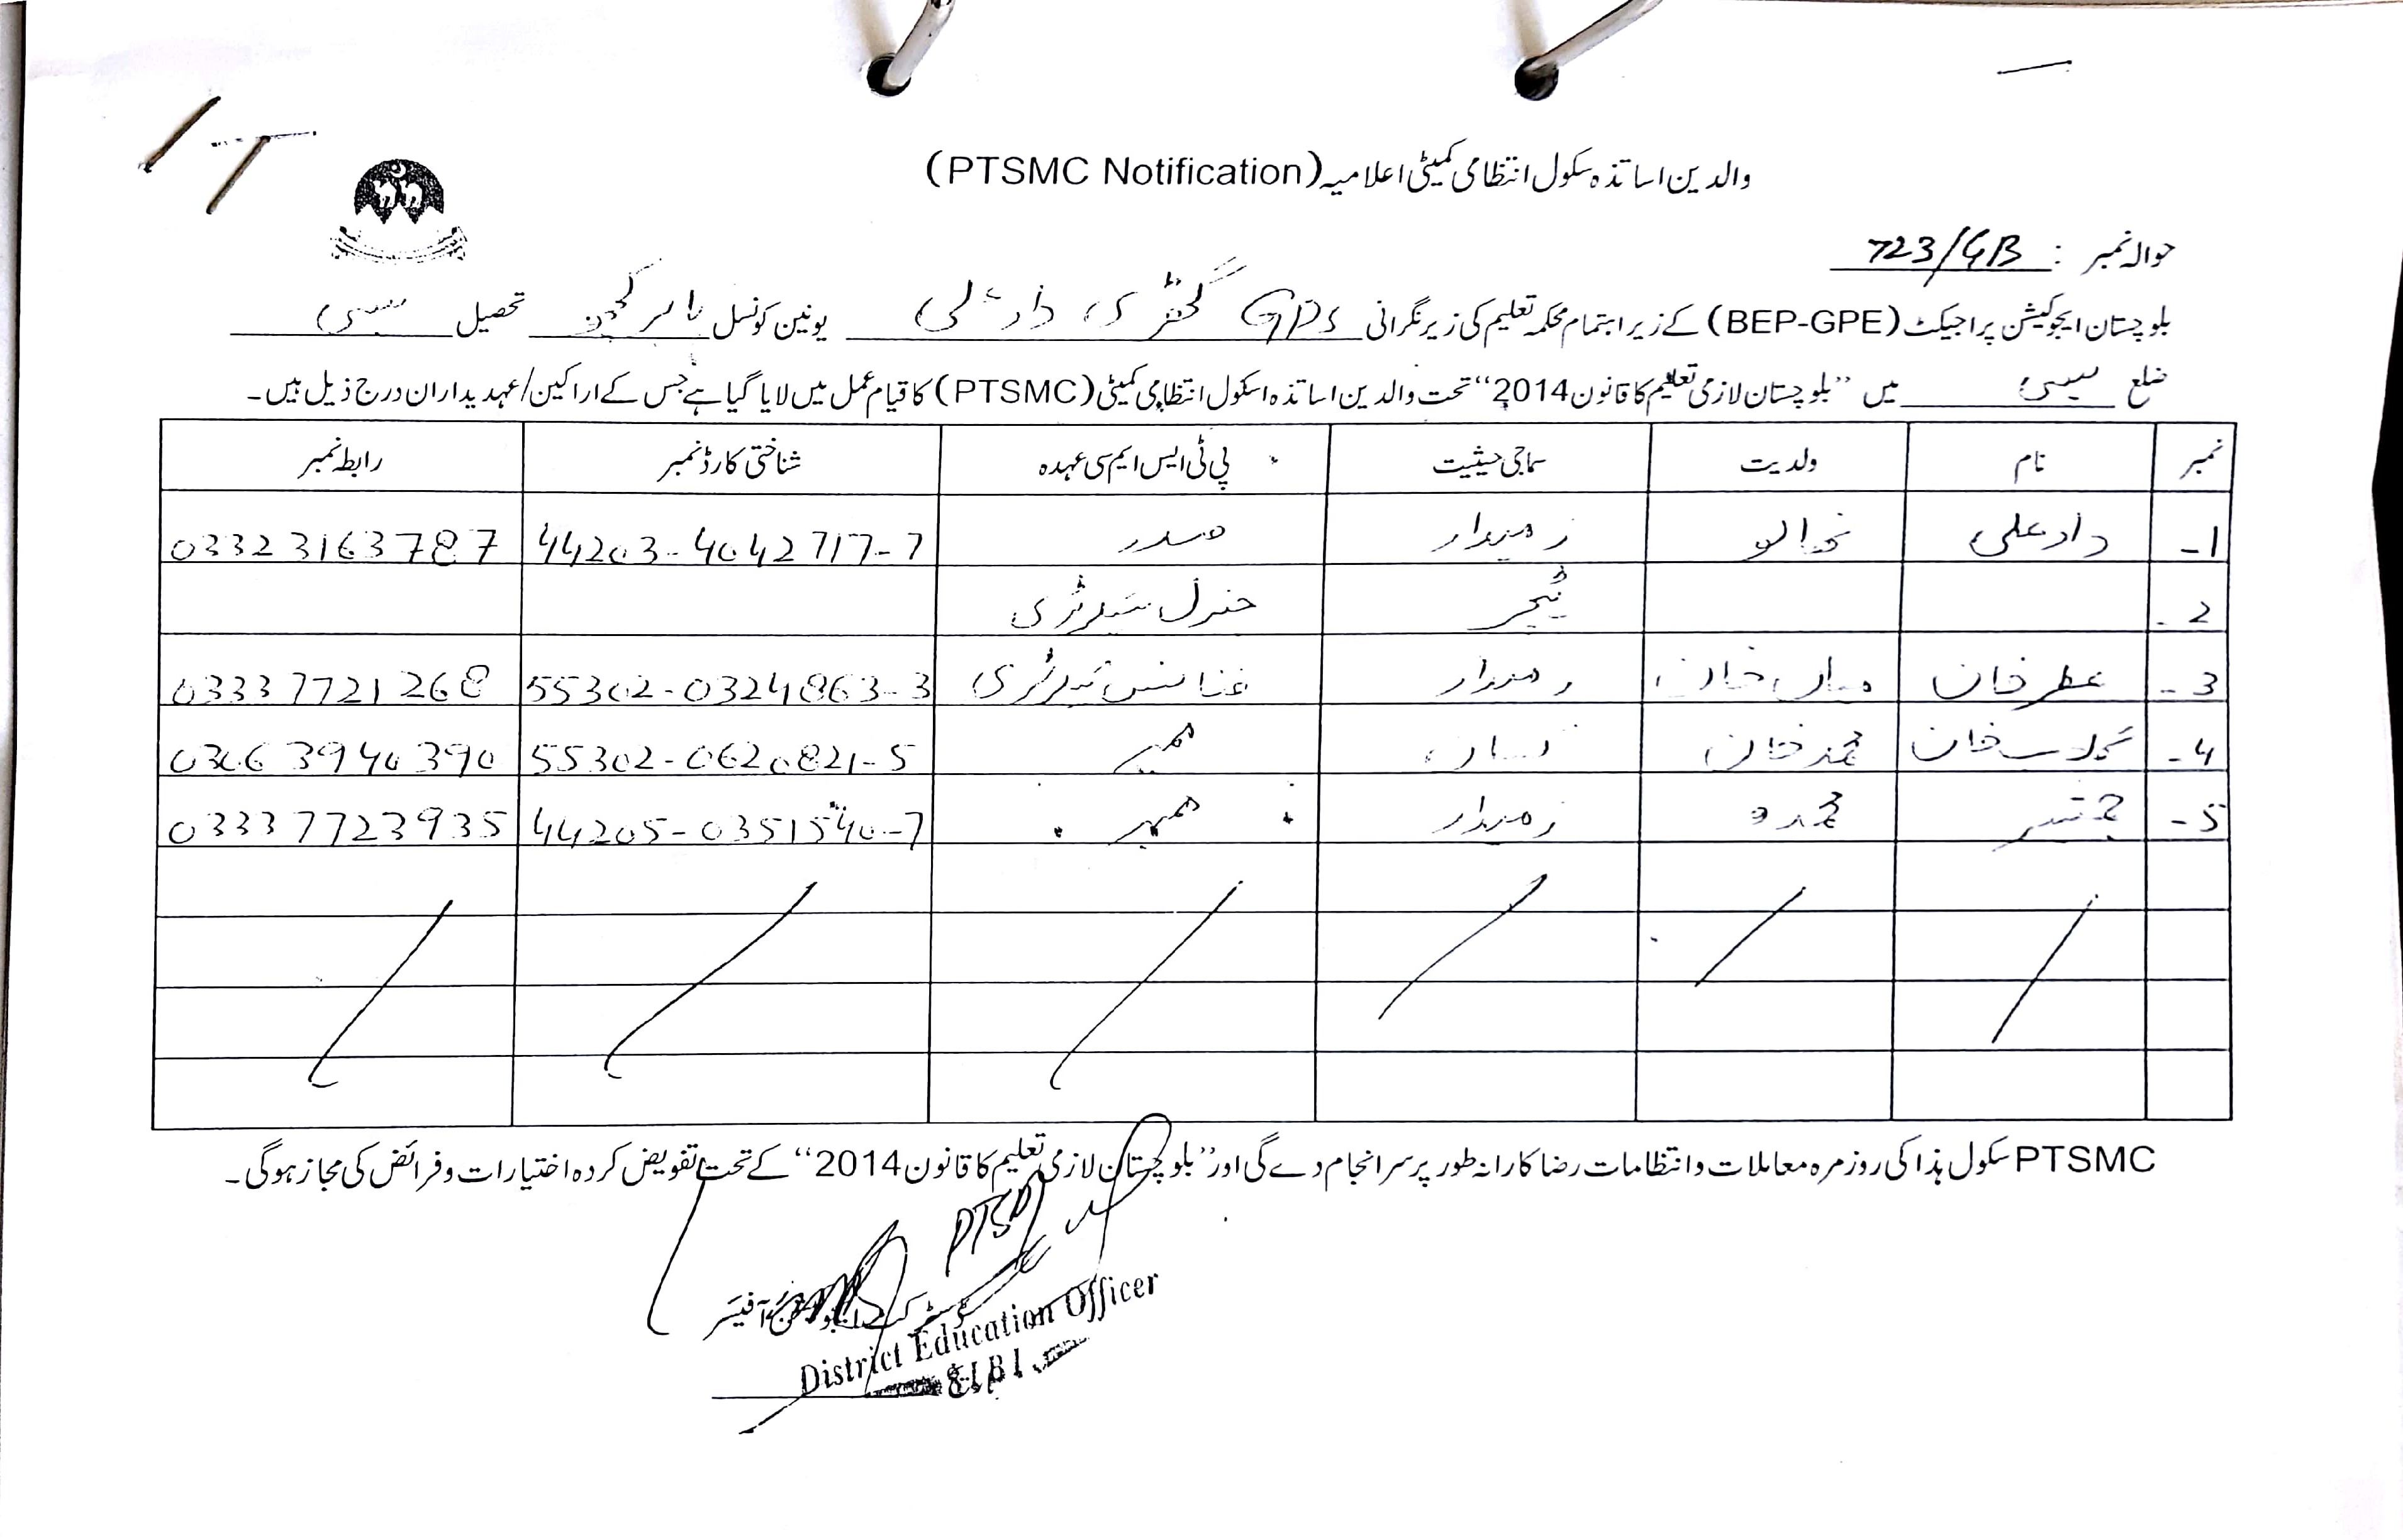 والدین اساتذہ سکول انتظامی کمیٹی اعلامیہ (PTSMC Notification)
حوالہ نمبر : 723/GB
بلوچستان ایجوکیشن پراجیکٹ (BEP-GPE) کے زیر اہتمام محکمہ تعلیم کی زیر نگرانی GPS یونین کونسل تحصیل سبی
ضلع سبی میں ”بلوچستان لازمی تعلیم کا قانون 2014“ تحت والدین اساتذہ اسکول انتظامی کمیٹی (PTSMC) کا قیام عمل میں لایا گیا ہے جس کے اراکین/عہدیداران درج ذیل ہیں۔
نمبر نام ولدیت سماجی حیثیت پی ٹی ایس ایم سی عہدہ شناختی کارڈ نمبر رابطہ نمبر
1- داد علی زمیندار صدر 44203-4042717-7 03323163787
2- ٹیچر جنرل سیکرٹری
3- عطر خان خان زمیندار فنانس سیکرٹری 55302-0324863-3 03337721268
4- گلاب خان محمد خان کسان ممبر 55302-0620821-5 03063940390
5- زمیندار ممبر 44205-0351540-7 03337723935
PTSMC سکول ہذا کی روزمرہ معاملات و انتظامات رضا کارانہ طور پر سرانجام دے گی اور ”بلوچستان لازمی تعلیم کا قانون 2014“ کے تحت تفویض کردہ اختیارات و فرائض کی مجاز ہوگی۔
ڈسٹرکٹ ایجوکیشن آفیسر
District Education Officer
SIBI